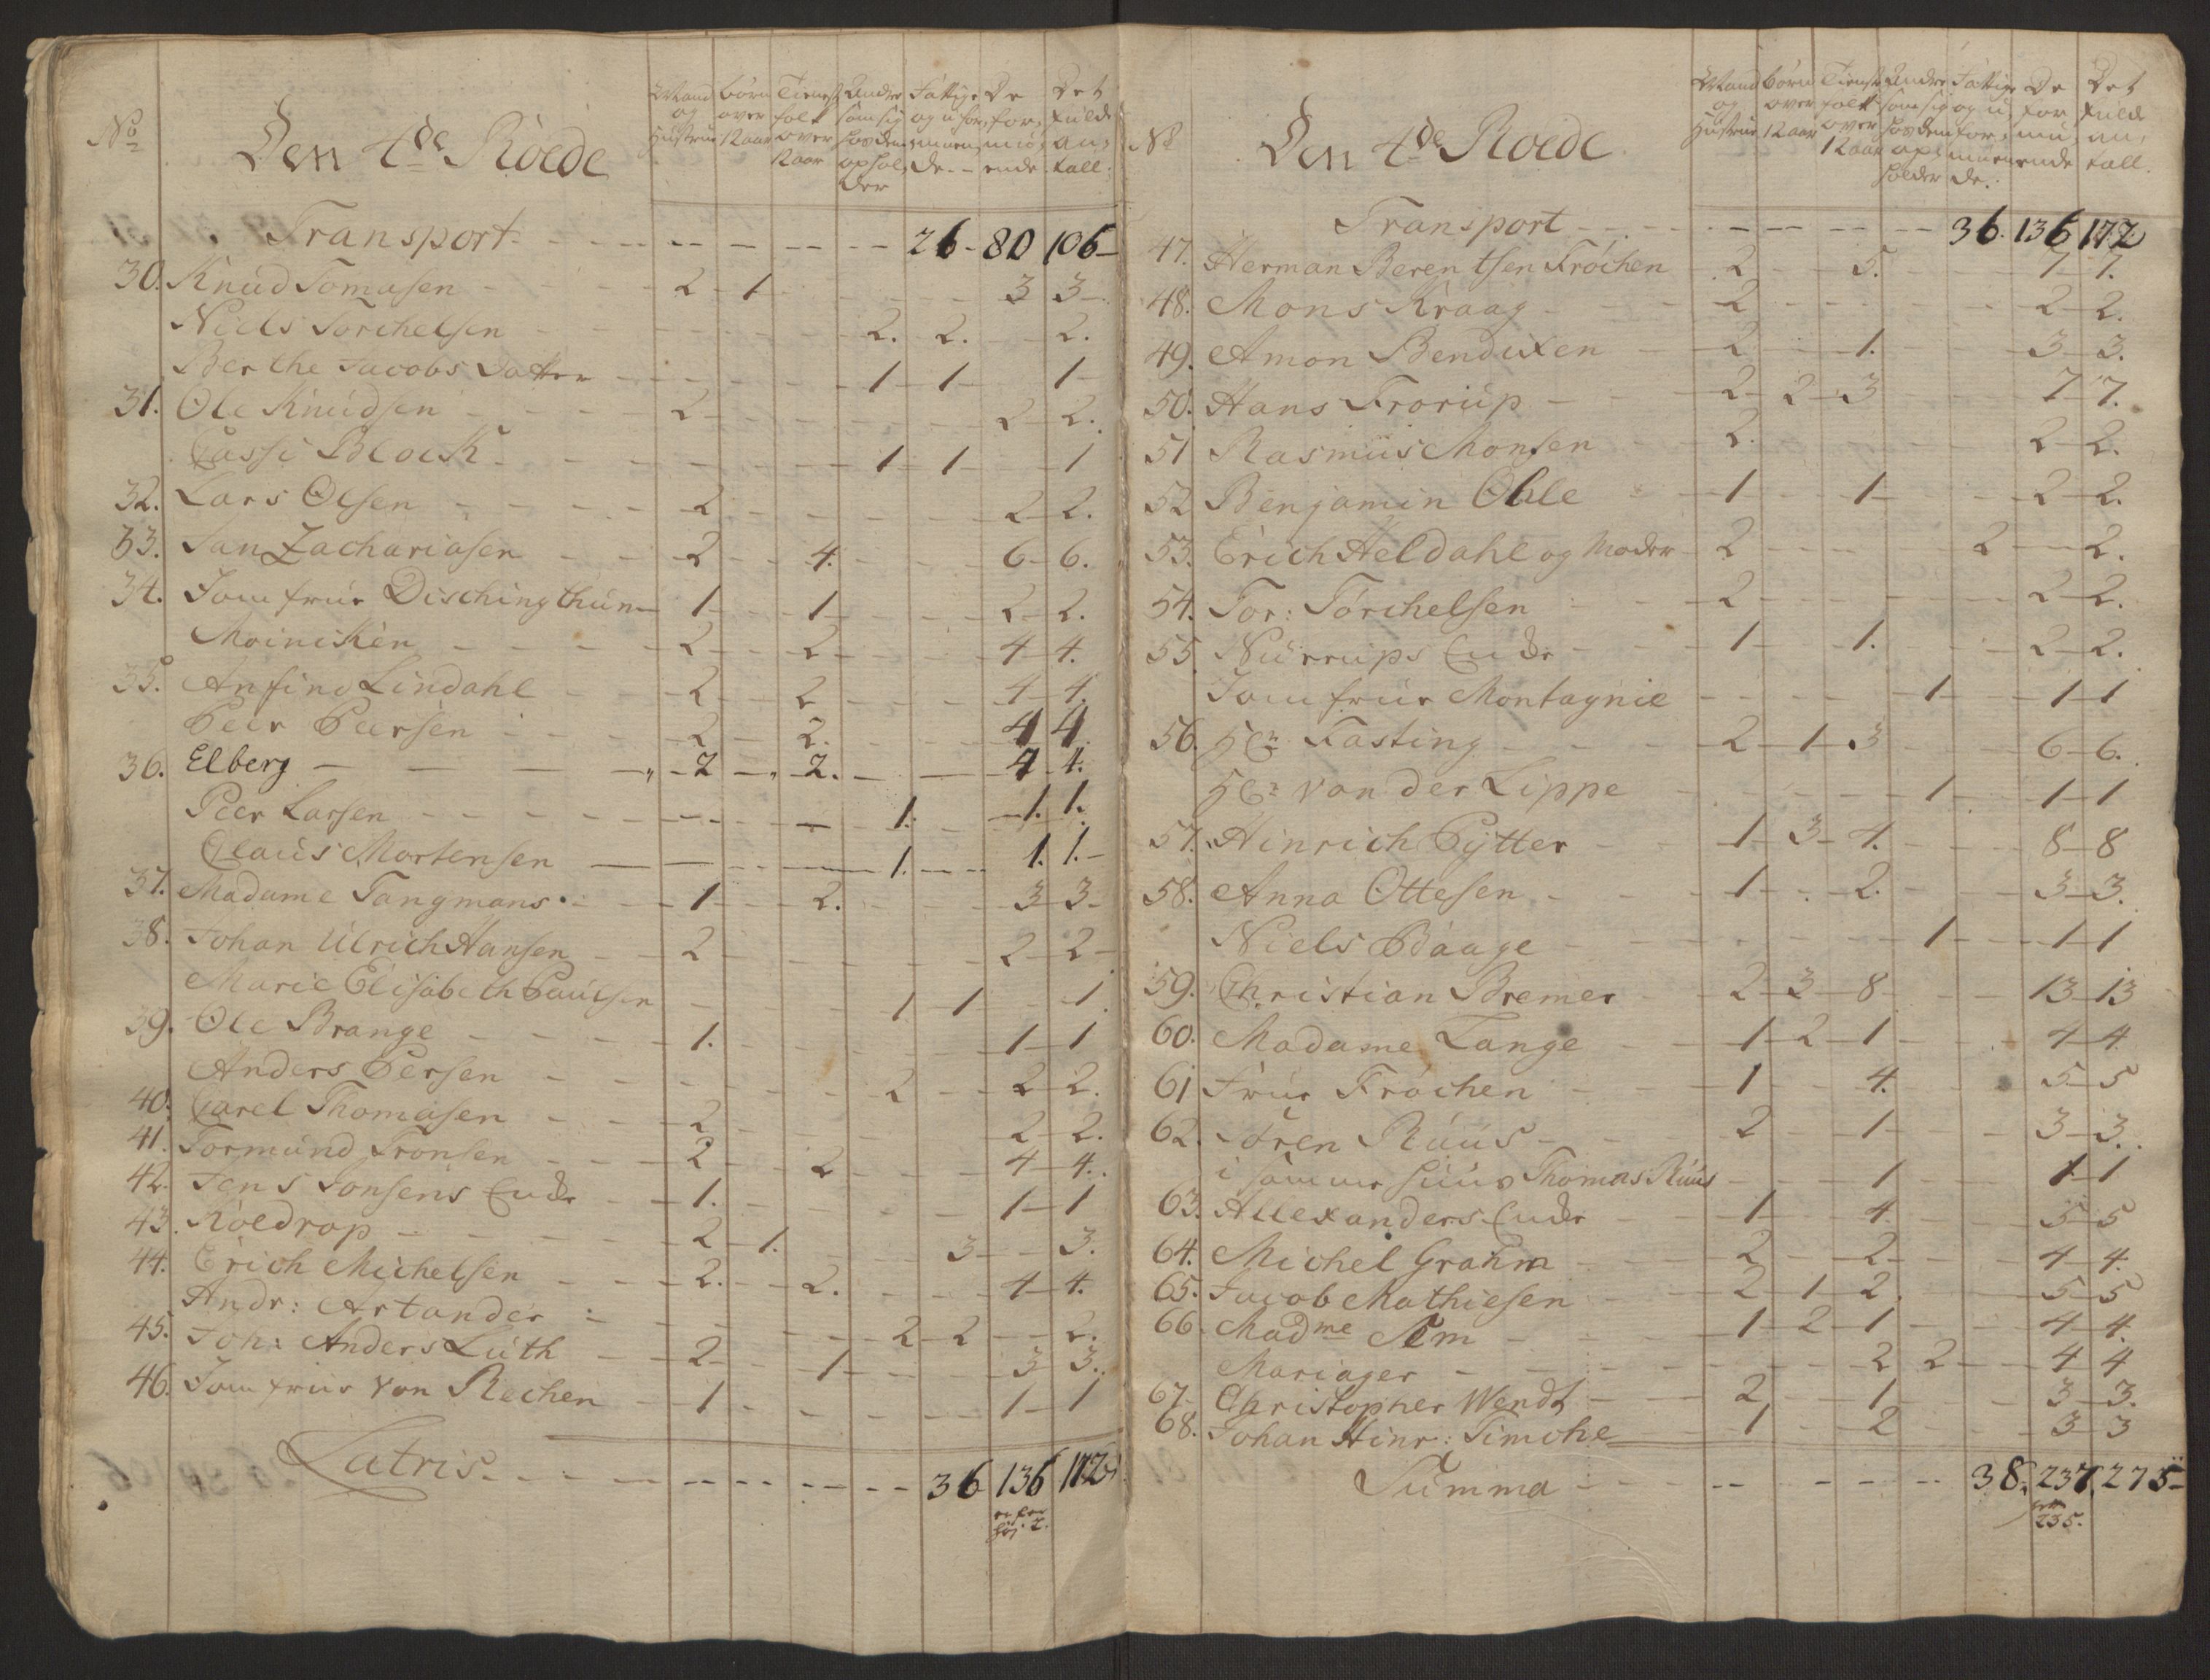 No
Den 4de Roede
Mand og Hustrue
børn over 12 aar
Tieneste folk over 12 aar
Andre som sig hos dem ophol, der
Fattige og ufor, muen, de
De for, mu, ende
Det fulde an, tall.
Transport - - - 26 - 80 106 -
30. Knud Tomasen - 2 - 1 - 3 3 -
Niels Torchelsen - 2. 2. - 2.
Berthe Jacobs Datter - 1 - 1 - 1 -
31. Ole Knudsen - 2 - 2 2.
Cassi Block - 1 - 1 1
32. Lars Olsen - 2 - 2 - 2.
33. Jan Zachariasen - 2 - 4. - 6 - 6.
34. Jomfrue Dischingthun - 1 - 1 - 2 - 2.
Moinichen - 2 - 2 - 4 - 4.
35. Anfind Lindahl - 2 - 2 - 4 - 4.
Peer Peersen - 2 - 2. - 4 4
36. Elberg - 2 - 2. - 4 - 4.
Peer Larsen - 1. - 1. 1.
Claus Mortensen - 1. - 1. 1. -
37. Madame Tangmans. - 1 - 2. - 3 - 3 -
38. Johan Ulrich Hansen - 2 - 2 - 2 -
Marie Elisabeth Paulsen - 1 - 1 - 1
39. Ole Brange - 1. - 1 - 1
Anders Persen - 2 - 2 2.
40. Carel Thomasen - 2 - 2 - 2.
41. Tormund Tronsen - 2 - 2 - 4 - 4.
42. Jens Jonsens Encke - 1. - 1 - 1
43. Roldrop - 2 - 1. - 3 - 3.
44. Erich Michelsen - 2. - 2. - 4 - 4.
Andr: Artander - 2 - 2 - 2.
45. Joh: Anders Luth - 2 - 1 - 3 3.
46. Jomfrue von Rechen - 1 - 1 - 1
Latris - - - 36 136 172

No
Den 4de Roede
Mand og Hustrue
børn over 12 aar
Tieneste folk over 12 aar
Andre som sig hos dem op, holder
Fattige og u for, muen de.
De for mu, ende
Det fulde an, tall.
Transport - - - 36. 136 172
47. Herman Berentsen Fröchen 2 - 5. - 7 - 7.
48. Mons Kraag - 2 - 2 - 2.
49. Amon Bendixen - 2 - 1. - 3 - 3.
50. Hans Frorup - 2 - 2 - 3 7 - 7.
51 Rasmus Monsen - 2. - 2 - 2.
52 Benjamin Ohle - 1 - 1 - 2 - 2.
53. Erich Heldahl og Moder - 2 - 2 - 2.
54. Tor: Torchelsen - 2 - 2 - 2.
55 Nürrups Encke - 1 - 1. - 2 - 2.
Jomfrue Montagnie - 1 - 1 - 1
56. Hr Fasting - 2 - 1 - 3 6 - 6.
Hr von der Lippe - 1 - 1 - 1
57. Hinrich Pÿtter - 1 - 3 - 4. - 8 - 8
58. Anna Ottesen - 1 - 2. - 3 - 3.
Niels Baage - 1 - 1 - 1
59. Christian Bremer - 2 - 3 - 8 - 13 - 13
60. Madame Lange - 1 - 2 - 1 - 4 - 4
61 Frue Fröchen - 1 - 4. - 5 - 5
62. Sören Ruus - 2 - 1 - 3 - 3.
i samme Huus Thomas Ruus - 1 - 1 - 1
63. Allexanders Encke - 1 - 4 - 5 - 5
64. Michel Grahm - 2 - 2 - 4 - 4.
65. Jacob Mathiesen - 2 - 1 - 2 - 5 - 5
66. Madme Tem - 1 - 2 - 1 - 4 - 4.
Mariager - 2 - 2 - 4 4
67. Christopher Wendt - 2 - 1 - 3 - 3.
68. Johan Hinr: Timche 1 - 2 - 3 - 3
Summa - - - 38. 237. 275 -
235.